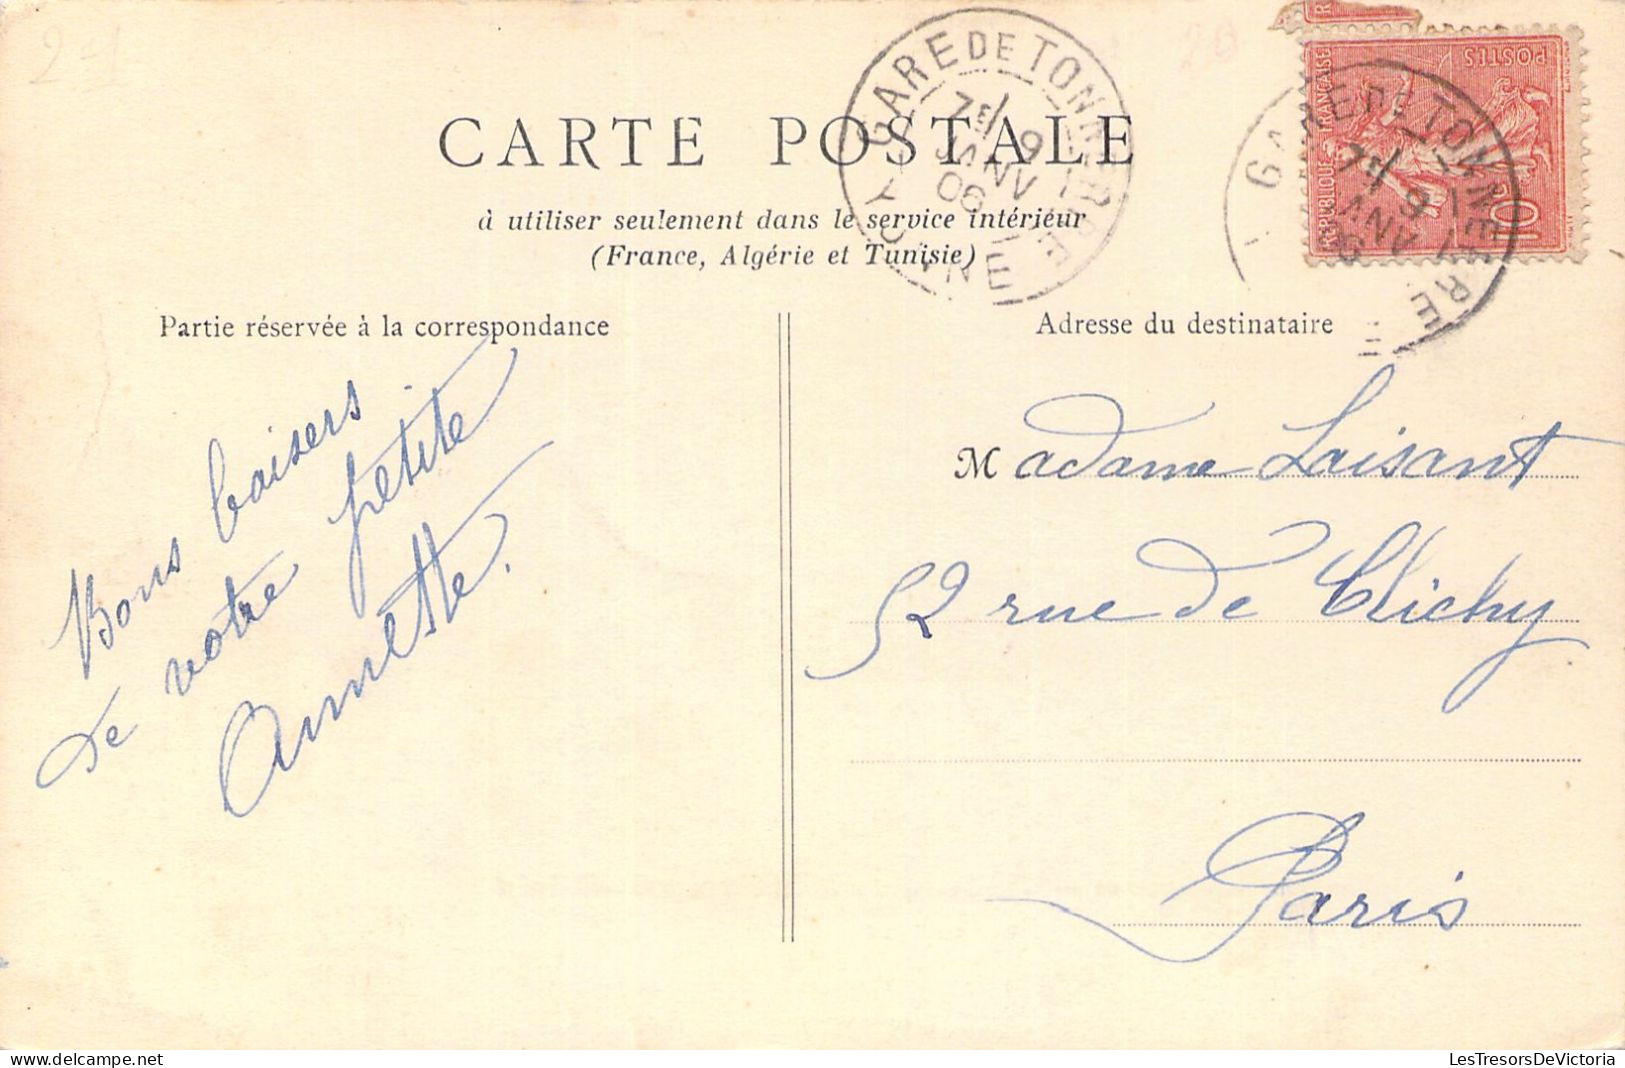 24
CARTE POSTALE
à utiliser seulement dans le service intérieur
(France, Algérie et Tunisie)
GARE DE TONNERRE
7E/ 9
JANV
06
YONNE
REPUBLIQUE FRANÇAISE
POSTES
10
GARE DE TONNERRE
7E/ 9
JANV
Partie réservée à la correspondance
Bons baisers
de votre petite
Annette.
Adresse du destinataire
Madame Laisant
52 rue de Clichy
Paris
www.delcampe.net
LesTresorsDeVictoria